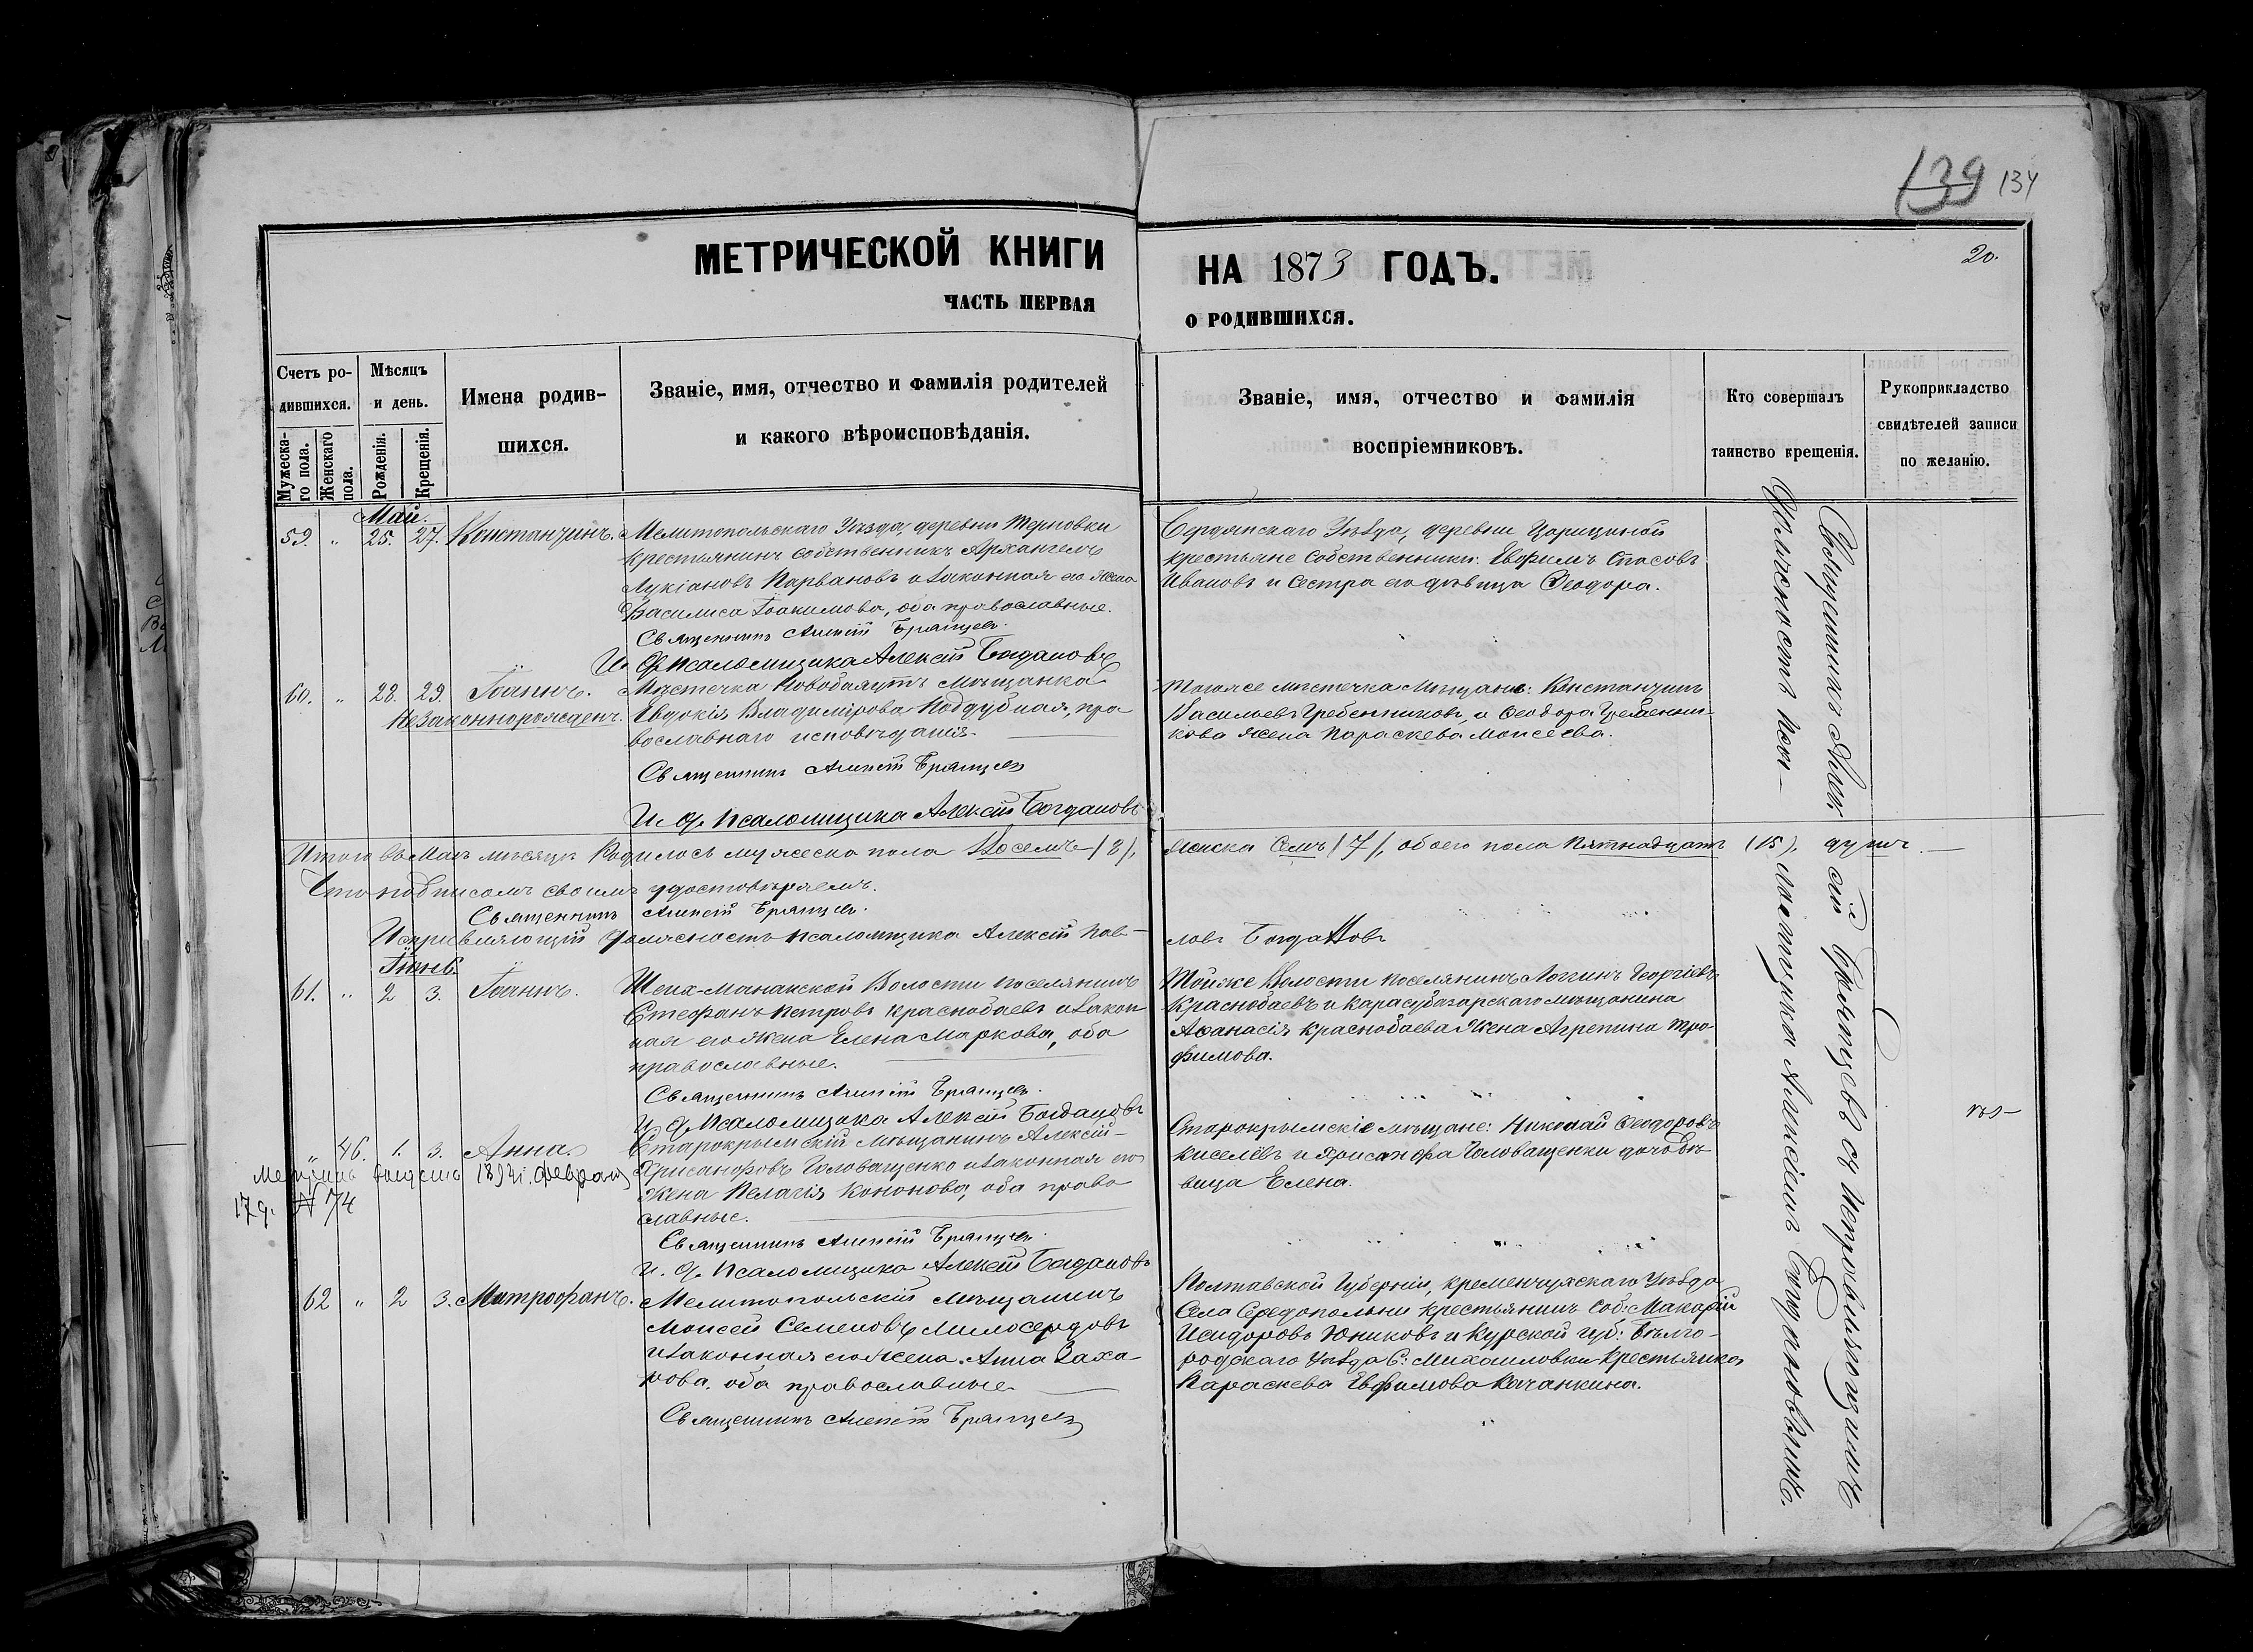 139 134
МЕТРИЧЕСКОЙ КНИГИ
НА 1873 ГОДЪ.
20.
ЧАСТЬ ПЕРВАЯ
О РОДИВШИХСЯ.
Счетъ ро-
дившихся.
Мужеска-
го пола.
Женскаго
пола.
Мѣсяцъ
и день.
Рожденія.
Крещенія.
Имена родив-
шихся.
Званіе, имя, отчество и фамилія родителей
и какого вѣроисповѣданія.
Званіе, имя, отчество и фамилія
воспріемниковъ.
Кто совершалъ
таинство крещенія.
Рукоприкладство
свидѣтелей записи
по желанію.
Май.
59. " 25. 27. Константинъ.
Мелитопольскаго Уѣзда, деревни Терновки
крестьянинъ собственникъ Архангелъ
Лукіановъ Парвановъ и законная его жена
Василиса Іоакимова, оба православные.
Священникъ Алексій Бранцевъ.
И. д. Псаломщика Алексій Богдановъ
Бердянскаго Уѣзда, деревни Царициной
крестьяне собственники: Евфимъ Спасовъ
Ивановъ и сестра его дѣвица Феодора.
60. " 28. 29. Іоаннъ.
Незаконнорожденъ.
Мѣстечка Новобаяутъ мѣщанка
Евдокія Владимірова Поддубная, пра-
вославнаго исповѣданія.
Священникъ Алексій Бранцевъ
И. д. Псаломщика Алексій Богдановъ
Тогоже мѣстечка Мѣщане: Константинъ
Васильевъ Гребенниковъ, и Феодора Гребенни-
кова жена Параскева Моисеева.
Итого въ Маѣ мѣсяцѣ Родилось мужеска пола Восемь (8), женска Семь (7), обоего пола Пятнадцать (15), душъ.
Что подписомъ своимъ удостовѣряемъ.
Священникъ Алексій Бранцевъ.
Исправляющій должность Псаломщика Алексій Пав-
ловъ Богдановъ
Іюнь.
61. " 2 3. Іоаннъ.
Шеих-Манакской Волости поселянинъ
Стефанъ Петровъ Краснобаевъ и закон
ная его жена Елена Маркова, оба
православные.
Священникъ Алексій Бранцевъ.
И. д. Псаломщика Алексій Богдановъ
Тойже Волости поселянинъ Логгинъ Георгіевъ
Краснобаевъ и Карасубазарскаго мѣщанина
Афанасія Краснобаева жена Агрепина Тро
фимова.
" 46. 1. 3. Анна.
Старокрымскій Мѣщанинъ Алексій
Хрисанфовъ Головащенко и законная его
жена Пелагія Кононова, оба право
славные.
Священникъ Алексій Бранцевъ.
И. д. Псаломщика Алексій Богдановъ
Старокрымскіе мѣщане: Николай Феодоровъ
Киселёвъ и Хрисанфа Головащенки дочь дѣ-
вица Елена.
февраля
17 д. № 74
62 " 2 3. Митрофанъ.
Мелитопольскій мѣщанинъ
Моисей Семеновъ Милосердовъ
и законная его жена Анна Заха-
рова, оба православные
Священникъ Алексій Бранцевъ
Полтавской Губерніи, Кременчужскаго Уѣзда
Села Середопольни крестьянинъ соб: Макарій
Исидоровъ Юниковъ и Курской губ: Бѣлго-
родскаго Уѣзда С: Михаиловки крестьянка
Параскева Евфимова Качанкина.
Священникъ Алексій Бранцевъ съ Исправляющимъ
Должность Псаломщика Алексіемъ Богдановымъ.